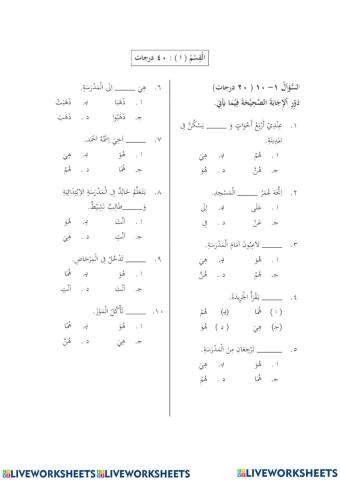 الْقِسْمُ ( ١ ) : ٤٠ درجات
السُّؤَالُ ١- ١٠ ( ٢٠ درجات)
دَوِّرِ الْإِجَابَةَ الصَّحِيْحَةَ فِيْمَا يَأْتِي.
١. عِنْدِيْ أَرْبَعُ أَخَوَاتٍ وَ _____ يَسْكُنَّ فِي
مَدِيْنَةٍ.
ا . هُمْ ب. هِيَ
ج. هُنَّ د . هُوَ
٢. اِتَّجَهَ عُمَرُ _____ الْمَسْجِدِ.
ا . عَلَى ب. إِلَى
ج. عَنْ د . فِي
٣. _____ لَاعِبُوْنَ أَمَامَ الْمَدْرَسَةِ.
ا . هُوَ ب. هِيَ
ج. هُمْ د . هُنَّ
٤. _____ يَقْرَأُ الْجَرِيْدَةَ.
( ا ) هُمَا (ب) هُمْ
(ج) هِيَ ( د ) هُوَ
٥. _____ تَرْجِعَانِ مِنَ الْمَدْرَسَةِ.
ا . هُوَ ب. هِيَ
ج. هُمَا د . هُمْ
٦. هِيَ _____ إِلَى الْمَدْرَسَةِ.
ا . ذَهَبَا ب. ذَهَبَتْ
ج. ذَهَبُوا د . ذَهَبَ
٧. _____ اَخِيْ اِسْمُهُ اَحْمَد.
ا . هُوَ ب. هِيَ
ج. هُمَا د . هُمْ
٨. يَتَعَلَّمُ خَالِدٌ فِي الْمَدْرَسَةِ الْاِبْتِدَائِيَّةِ
وَ_____طَالِبٌ نَشِيْطٌ.
ا . أَنْتَ ب. هُوَ
ج. أَنْتِ د . هِيَ
٩. _____ تَدْخُلُ فِي الْمِرْحَاضِ.
ا . هُوَ ب. هُمَا
ج. هِيَ د . اَنْتِ
١٠. _____ تَأْكُلُ الْمَوْزَ.
ا . هُوَ ب. هُمَا
ج. هِيَ د . هُنَّ
LIVEWORKSHEETS LIVEWORKSHEETS LIVEWORKSHEETS